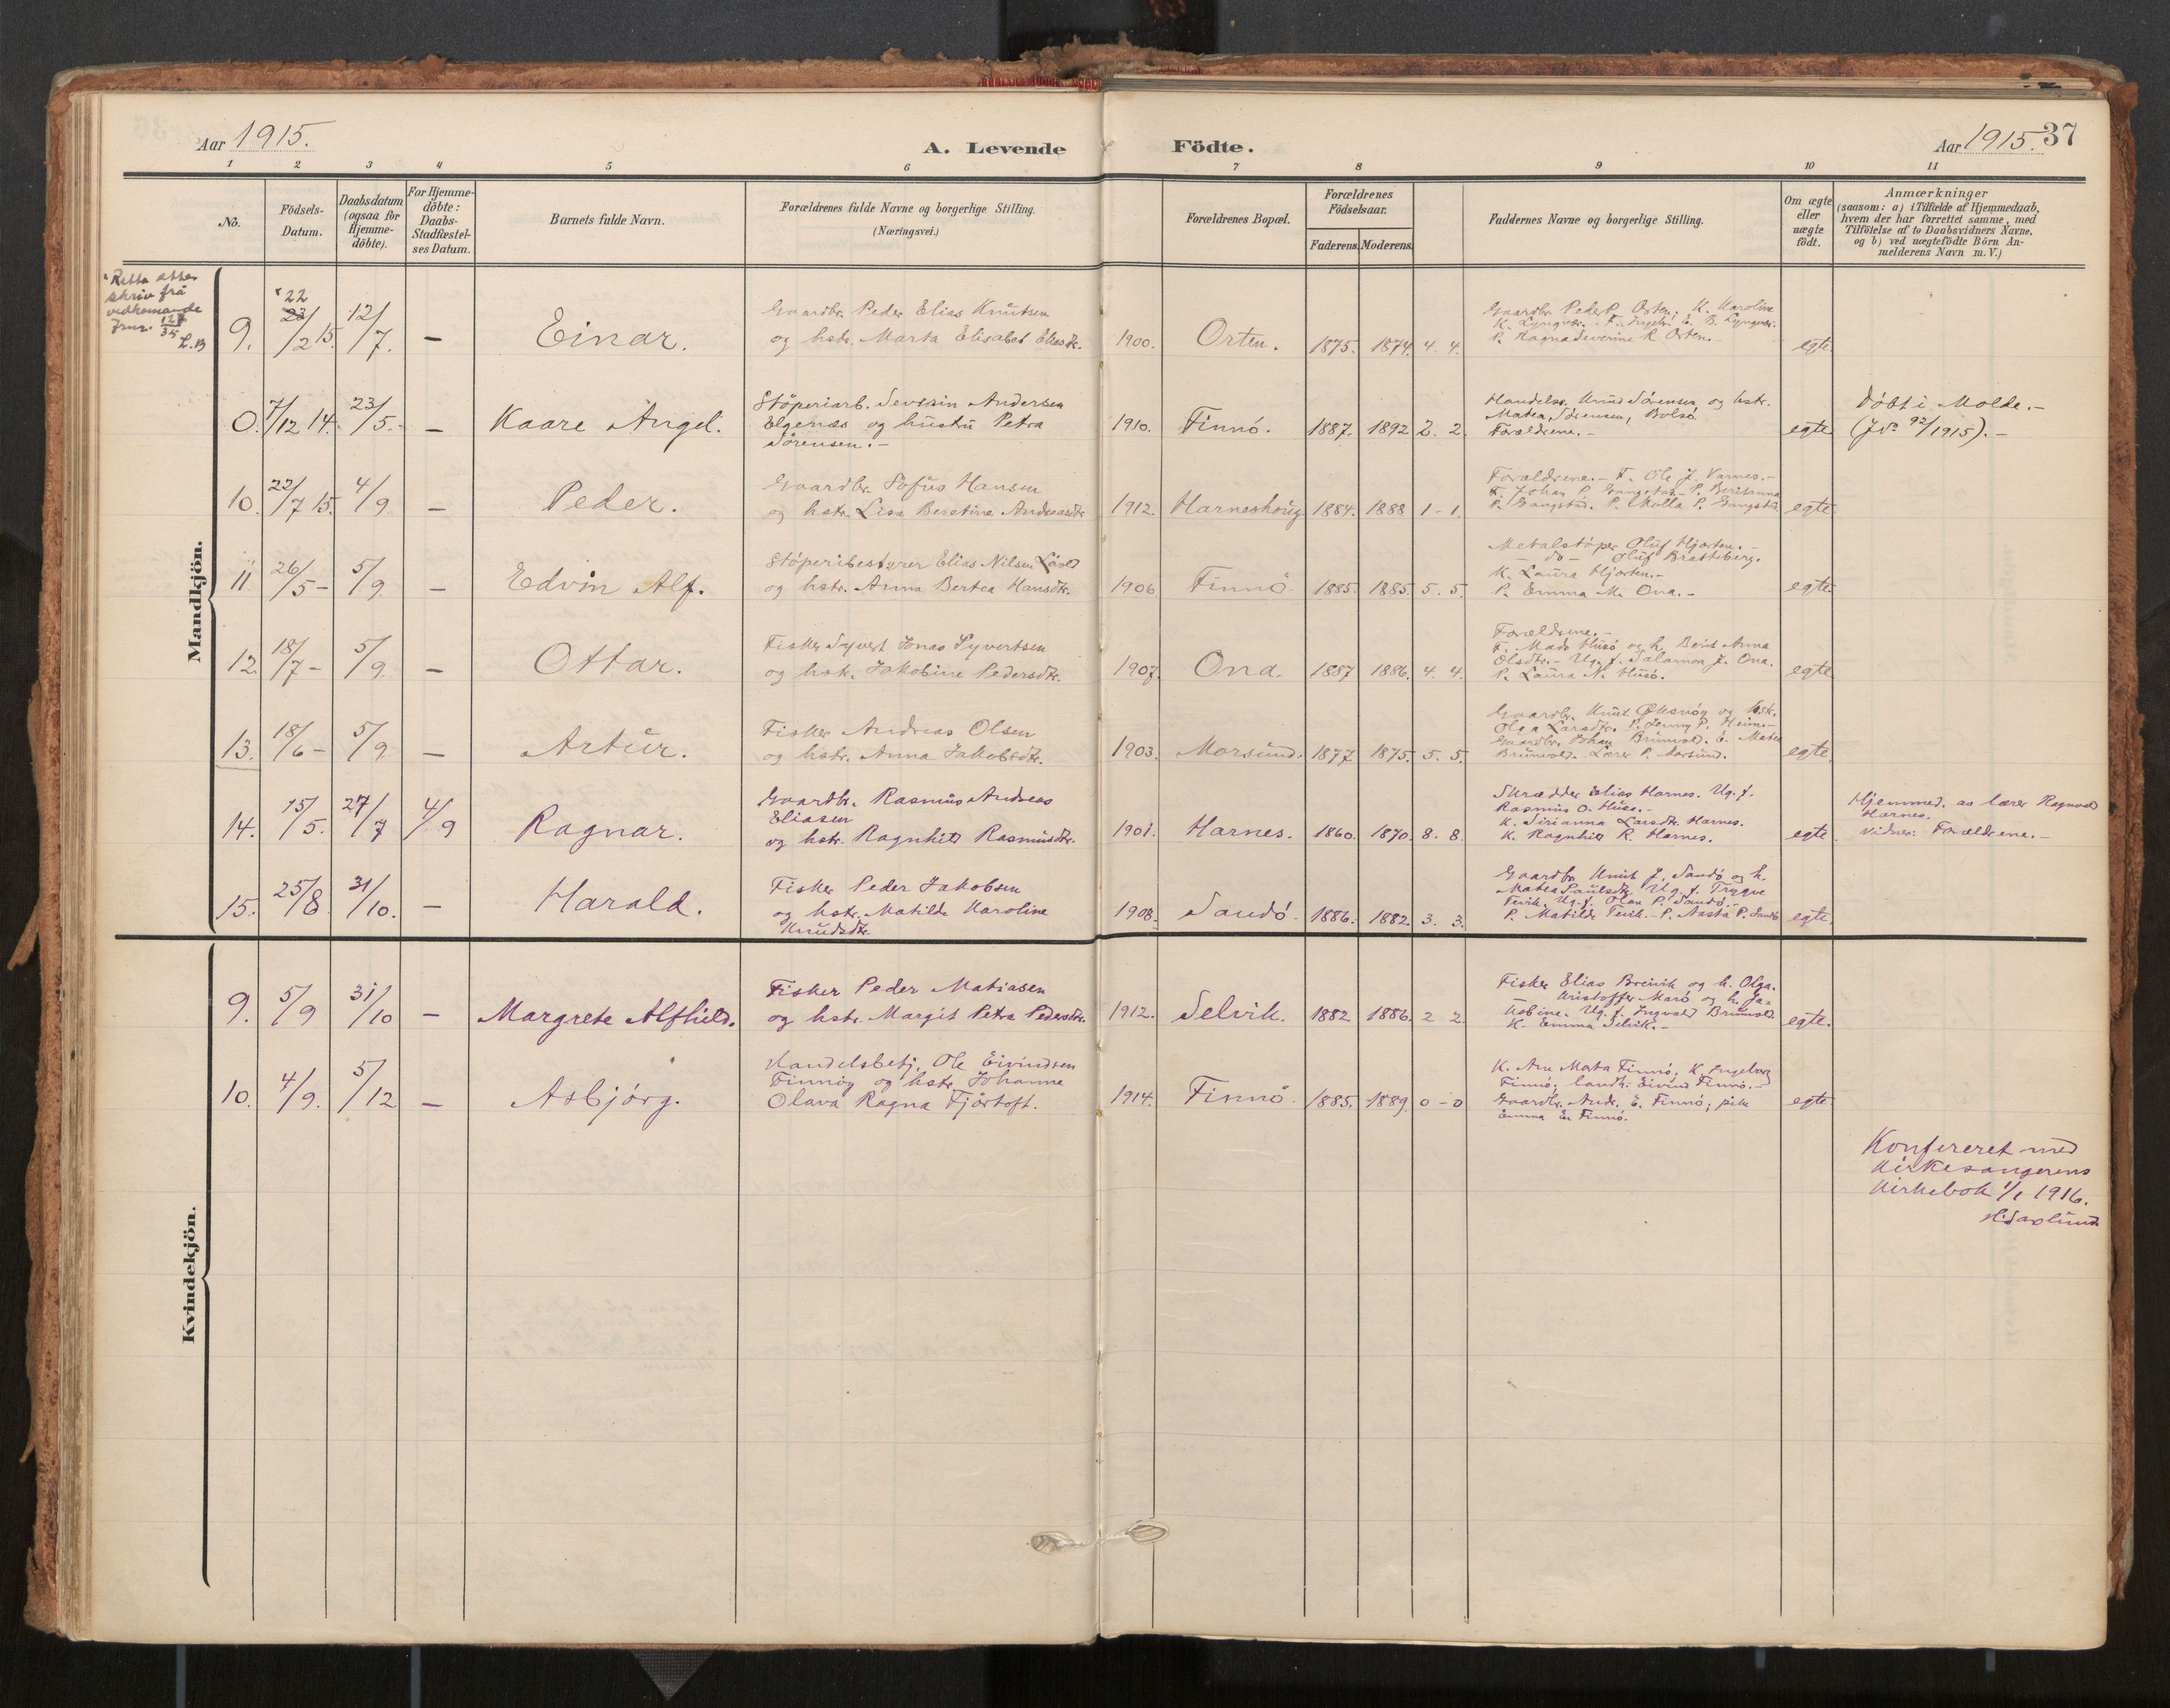 Aar 1915.
A. Levende Födte.
Aar 1915. 37
1 2 3 4 5 6 7 8 9 10 11
No.
Födsels-Datum.
Daabsdatum (ogsaa for Hjemme-döbte).
For Hjemme-döbte: Daabs-Stadfæstel-ses Datum.
Barnets fulde Navn.
Forældrenes fulde Navne og borgerlige Stilling.
(Næringsvei.)
Forældrenes Bopæl.
Forældrenes Födselsaar.
Faderens. Moderens.
Faddernes Navne og borgerlige Stilling.
Om ægte eller uægte födt.
Anmærkninger
(saasom: a) i Tilfælde af Hjemmedaab,
hvem der har forrettet samme, med
Tilföielse af to Daabsvidners Navne,
og b) ved uægtefödte Börn An-
melderens Navn m. V.)
Retta etter
skriv frå
vedkomande
Jrnr. 127/35
L.B
Mandkjön.
9. 22 23/2 15. 12/7. – Einar.
Gaardbr. Peder Elias Knutsen
og hstr. Marta Elisabet Eliasdtr.
1900. Orten. 1875. 1874. 4. 4.
Gaardbr. Peder P. Orten. K. Karoline
K. Lyngvær. F. Ingebr. E. B. Lyngvær.
P. Ragna Severine R. Orten.–
egte
0. 7/12 14. 23/5. – Kaare Angel.
Stöperiarb. Severin Andersen
Elgenæs og hustru Petra
Sörensen.–
1910. Finnö. 1887. 1892 2. 2.
Handelsr. Knud Sörensen og hstr.
Matea Sörensen, Bolsö
Forældrene.–
egte
Döbt i Molde.–
(J No 92/1915).–
10. 22/7 15. 4/9 – Peder.
Gaardbr. Sofus Hansen
og hstr. Lisa Beretine Andreasdtr
1912. Harneshoug 1884. 1888 1 - 1.
Forældrene.– F. Ole J. Varnes.–
F. Johan P. Gangstad.– P. Berianna
P. Gangstad. P. Molla P. Gangstad.
egte
11. 26/5 – 5/9. – Edvin Alf.
Stöperibestyrer Elias Nilsen Lövold
og hstr. Anna Bertea Hansdtr.
1906 Finnö 1885. 1885. 5. 5.
Metalstöper Oluf Hjorten.–
– do – Oluf Bratteberg.
K. Laura Hjorten.–
P. Emma M. Ona.–
egte
12. 18/7 – 5/9. – Ottar.
Fisker Syvert Jonas Syvertsen
og hstr. Jakobine Pedersdtr.
1907. Ona. 1887 1886. 4. 4.
Forældrene.–
F. Mads Husö og h. Berit Anna
Olsdtr.– Ug. f. Salamon J. Ona.
P. Laura N. Husö.
egte
13. 18/6 – 5/9. – Artur.
Fisker Andreas Olsen
og hstr. Anna Jakobsdtr.
1903. Morsund. 1877. 1875. 5. 5.
Gaardbr. Knut Öksnög og hstr.
Olga Larsdtr. P. Jenny P. Heim.–
Gaardbr. Johan Brunvold. E. Matea
Brunvold. Lærer P. Morsund.
egte
14. 15/5. 27/7 4/9 Ragnar.
Gaardbr. Rasmus Andreas
Eliasen
og hstr. Ragnhild Rasmusdtr.
1901. Harnes. 1860. 1870. 8. 8.
Skrædder Elias Harnes. Ug. f.
Rasmus O. Huse.–
K. Sirianna Larsdtr. Harnes.
K. Ragnhild R. Harnes.
egte
Hjemmed. av lærer Ragnvald
Harnes.
Vidner: Forældrene.–
15. 25/8 31/10. – Harald.
Fisker Peder Jakobsen
og hstr. Matilde Karoline
Knudsdtr.
1908. Sandö. 1886. 1882. 3. 3.
Gaardbr. Knut J. Sandö og h.
Matea Paulsdtr. Ug. f. Trygve
Tevik. Ug. f. Olav P. Sandö.–
P. Matilde Tevik.– P. Aasta P. Sandö
egte.
Kvindekjön.
9. 5/9 31/10 – Margrete Alfhild.
Fisker Peder Matiasen
og hstr. Margit Petra Pedersdtr.
1912. Selvik. 1882 1886. 2 2.
Fisker Elias Breivik og h. Olga.
Kristoffer Marö og h. Ja-
kobine. Ug. f. Ingvald Brunvold.
K. Emma Selvik.–
egte.
10. 4/9. 5/12 – Asbjörg.
Handelsbetj. Ole Eivindsen
Finnöy og hstr. Johanne
Olava Ragna Fjörtoft.
1914. Finnö 1885. 1889. 0 - 0
K. Ane Mata Finnö, K. Ingeborg
Finnö, landh. Eivind Finnö.–
Gaardbr. Andr. E. Finnö; pike
Emma E. Finnö.
egte
Konfereret med
Kirkesangerens
Kirkebok 1/1 1916.
H. Saxlund